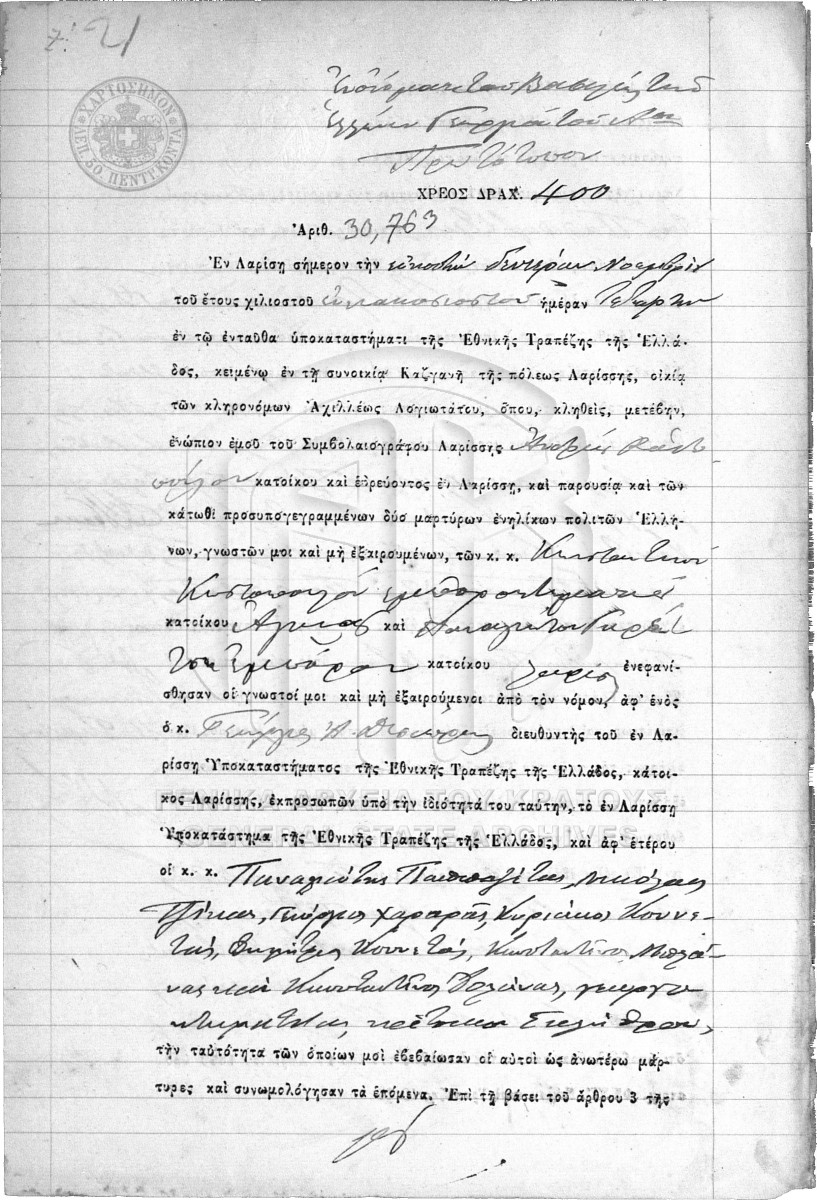 21
ΧΑΡΤΟΣΗΜΟΝ
ΛΕΠ. 50. ΠΕΝΤΗΚΟΝΤΑ
Ἐν ὀνόματι τοῦ Βασιλέως τῶν
Ἑλλήνων Γεωργίου τοῦ Αου
Πρωτότυπον
ΧΡΕΟΣ ΔΡΑΧ. 400
Ἀριθ. 30,763
Ἐν Λαρίσῃ σήμερον τὴν εἰκοστὴν δευτέραν Νοεμβρίου
τοῦ ἔτους χιλιοστοῦ ἐννεακοσιοστοῦ ἡμέραν Τετάρτην
ἐν τῷ ἐνταῦθα ὑποκαταστήματι τῆς Ἐθνικῆς Τραπέζης τῆς Ἑλλά-
δος, κειμένῳ ἐν τῇ συνοικίᾳ Καζγανῆ τῆς πόλεως Λαρίσσης, οἰκίᾳ
τῶν κληρονόμων Ἀχιλλέως Λογιωτάτου, ὅπου, κληθεὶς, μετέβην,
ἐνώπιον ἐμοῦ τοῦ Συμβολαιογράφου Λαρίσσης Ἀνδρέου
κατοίκου καὶ ἑδρεύοντος ἐν Λαρίσσῃ, καὶ παρουσίᾳ καὶ τῶν
κάτωθι προσυπογεγραμμένων δύο μαρτύρων ἐνηλίκων πολιτῶν Ἑλλή-
νων, γνωστῶν μοι καὶ μὴ ἐξαιρουμένων, τῶν κ. κ. Κωνσταντίνου
Κωστοπούλου
κατοίκου Ἀγυιᾶς καὶ Παναγιώτου
ἐμπόρου κατοίκου Λαρίσσης ἐνεφανί-
σθησαν οἱ γνωστοί μοι καὶ μὴ ἐξαιρούμενοι ἀπὸ τὸν νόμον, ἀφ' ἑνὸς
ὁ κ. Γεώργιος Ἀ. διευθυντὴς τοῦ ἐν Λα-
ρίσσῃ Ὑποκαταστήματος τῆς Ἐθνικῆς Τραπέζης τῆς Ἑλλάδος, κάτοι-
κος Λαρίσσης, ἐκπροσωπῶν ὑπὸ τὴν ἰδιότητά του ταύτην, τὸ ἐν Λαρίσσῃ
ΓΕΝΙΚΑ ΑΡΧΕΙΑ ΤΟΥ ΚΡΑΤΟΥΣ
Ὑποκατάστημα τῆς Ἐθνικῆς Τραπέζης τῆς Ἑλλάδος, καὶ ἀφ' ἑτέρου
GENERAL STATE ARCHIVES
οἱ κ. κ. Παναγιώτης Παππαζήτας, Νικόλαος
Τζίκας, Γεώργιος Χαραρῆς, Κυριάκος Κουνε-
τάς, Δημήτριος Κουνετάς, Κωνσταντῖνος
καὶ Κωνσταντῖνος
τὴν ταὐτότητα τῶν ὁποίων μοὶ ἐβεβαίωσαν οἱ αὐτοὶ ὡς ἀνωτέρω μάρ-
τυρες καὶ συνωμολόγησαν τὰ ἑπόμενα. Ἐπὶ τῇ βάσει τοῦ ἄρθρου 3 τῆς